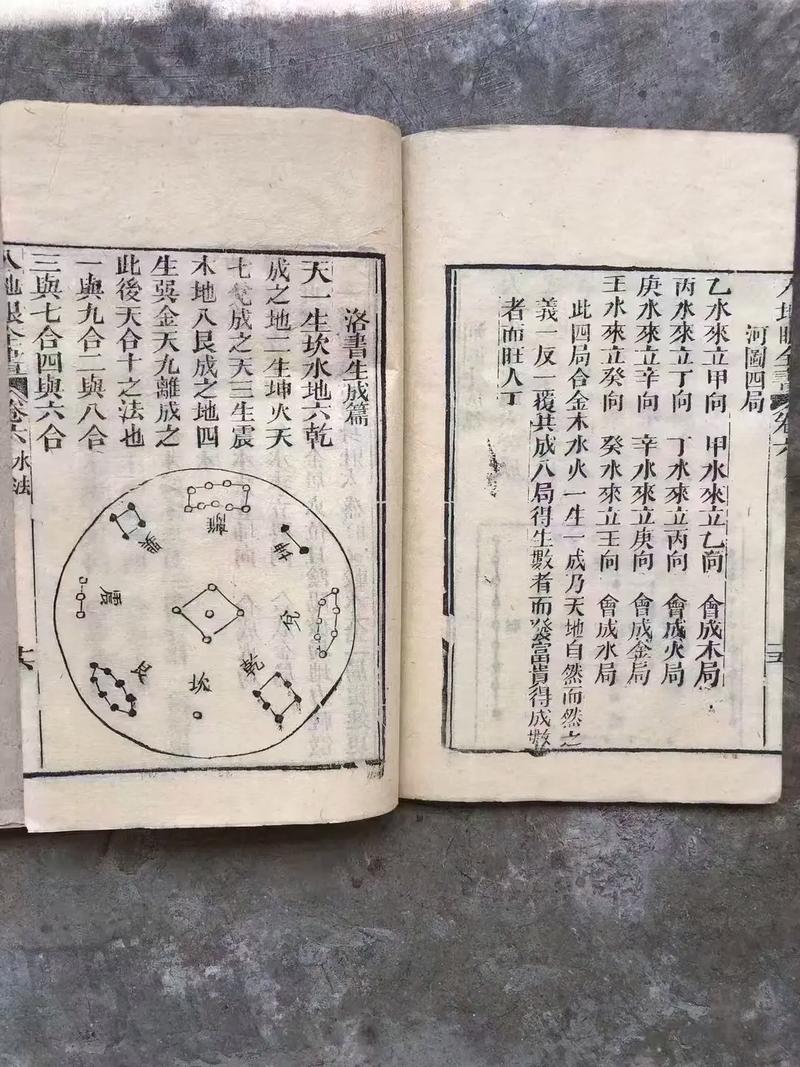 河圖四局
乙水來立甲向 甲水來立乙向 會成木局
丙水來立丁向 丁水來立丙向 會成火局
庚水來立辛向 辛水來立庚向 會成金局
壬水來立癸向 癸水來立壬向 會成水局
此四局合金木水火一生一成乃天地自然而然之
義一反一覆其成八局得生數者而發富貴得成數
者而旺人丁
十五
洛書生成篇
天一生坎水地六乾
成之地二生坤火天
七兌成之天三生震
木地八艮成之地四
生巽金天九離成之
此後天合十之法也
一與九合二與八合
三與七合四與六合
離
坤
兌
乾
坎
艮
震
巽
卷六 水法